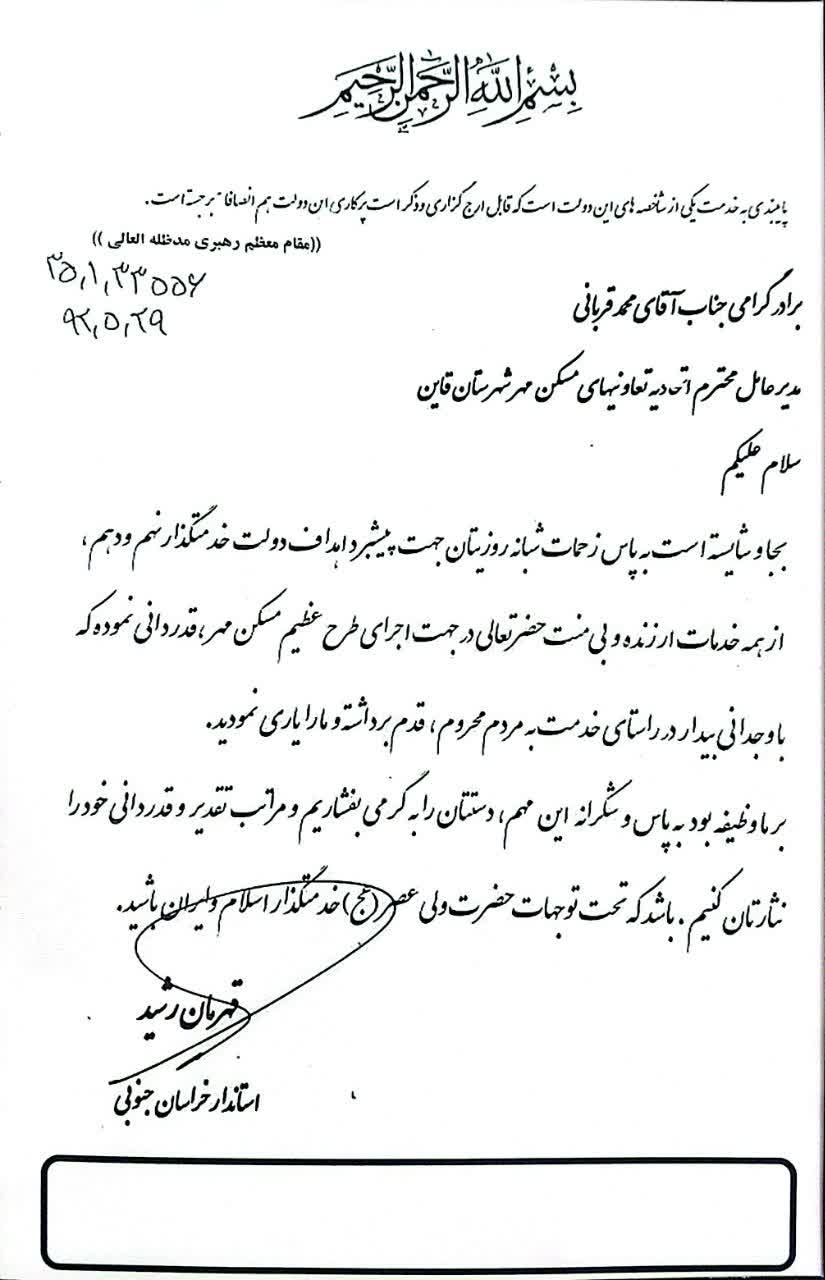 بسم الله الرحمن الرحیم
پایبندی به خدمت یکی از شاخصه های این دولت است که قابل ارج گزاری و ذکر است پرکاری این دولت هم انصافاً برجسته است.
((مقام معظم رهبری مدظله العالی ))
۳۵,۱,۳۳۵۵۶
۹۲,۵,۲۹
برادر گرامی جناب آقای محمد قربانی
مدیر عامل محترم اتحادیه تعاونیهای مسکن مهر شهرستان قاین
سلام علیکم
بجا و شایسته است به پاس زحمات شبانه روزیتان جهت پیشبرد اهداف دولت خدمتگذار نهم و دهم،
از همه خدمات ارزنده و بی منت حضرتعالی در جهت اجرای طرح عظیم مسکن مهر، قدردانی نموده که
با وجدانی بیدار در راستای خدمت به مردم محروم، قدم برداشته و ما را یاری نمودید.
بر ما وظیفه بود به پاس و شکرانه این مهم، دستتان را به گرمی بفشاریم و مراتب تقدیر و قدردانی خود را
نثارتان کنیم. باشد که تحت توجهات حضرت ولی عصر (عج) خدمتگذار اسلام و ایران باشید.
قهرمان رشید
استاندار خراسان جنوبی